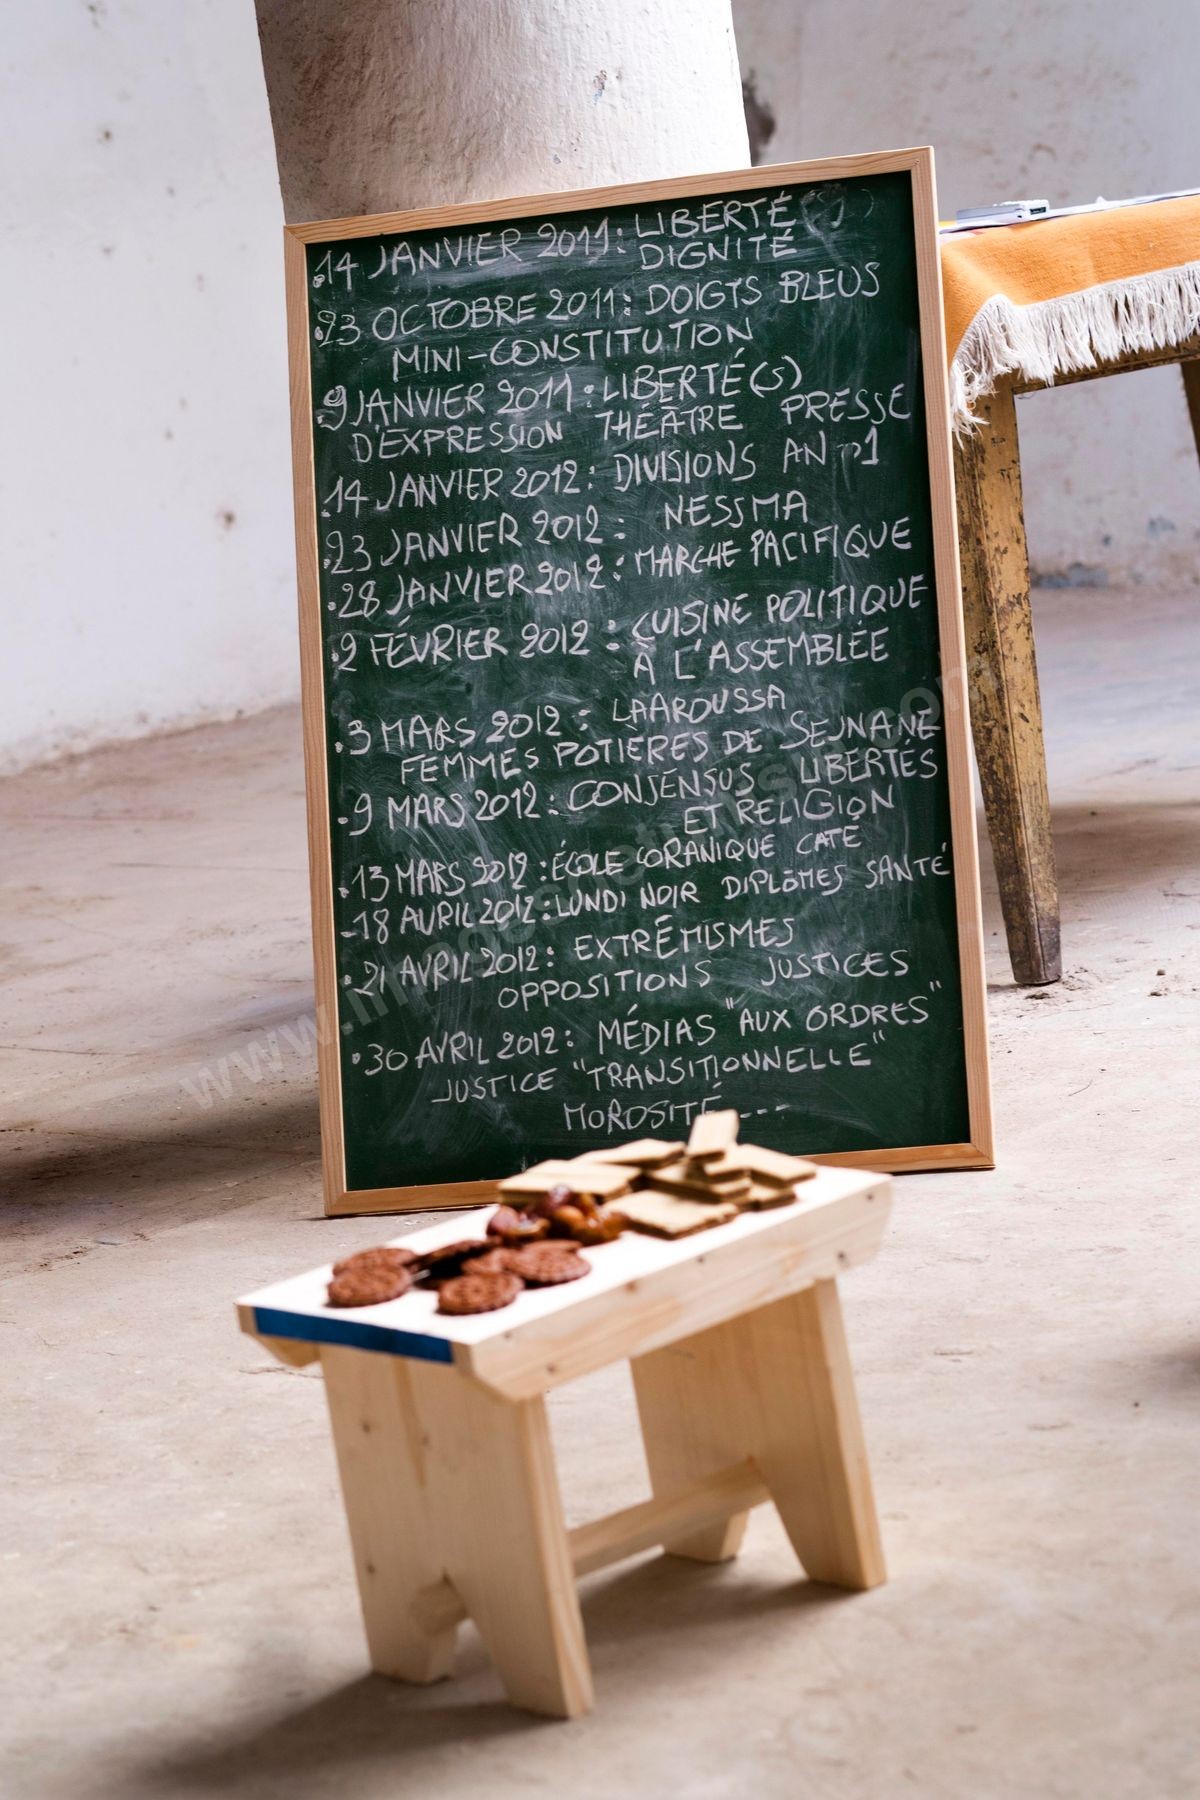 .14 JANVIER 2011: LIBERTÉ
DIGNITÉ
.23 OCTOBRE 2011: DOIGTS BLEUS
MINI-CONSTITUTION
.9 JANVIER 2011: LIBERTÉ(S)
D'EXPRESSION THÉÂTRE PRESSE
.14 JANVIER 2012: DIVISIONS AN 1
.23 JANVIER 2012: NESSMA
.28 JANVIER 2012: MARCHE PACIFIQUE
.2 FÉVRIER 2012: CUISINE POLITIQUE
À L'ASSEMBLÉE
.3 MARS 2012: LAAROUSSA
FEMMES POTIÈRES DE SEJNANE
.9 MARS 2012: CONSENSUS LIBERTÉS
ET RELIGION
.13 MARS 2012: ÉCOLE CORANIQUE CATÉ
-18 AVRIL 2012: LUNDI NOIR DIPLÔMES SANTÉ
.21 AVRIL 2012: EXTRÉMISMES
OPPOSITIONS JUSTICES
.30 AVRIL 2012: MÉDIAS "AUX ORDRES"
JUSTICE "TRANSITIONNELLE"
MOROSITÉ ---